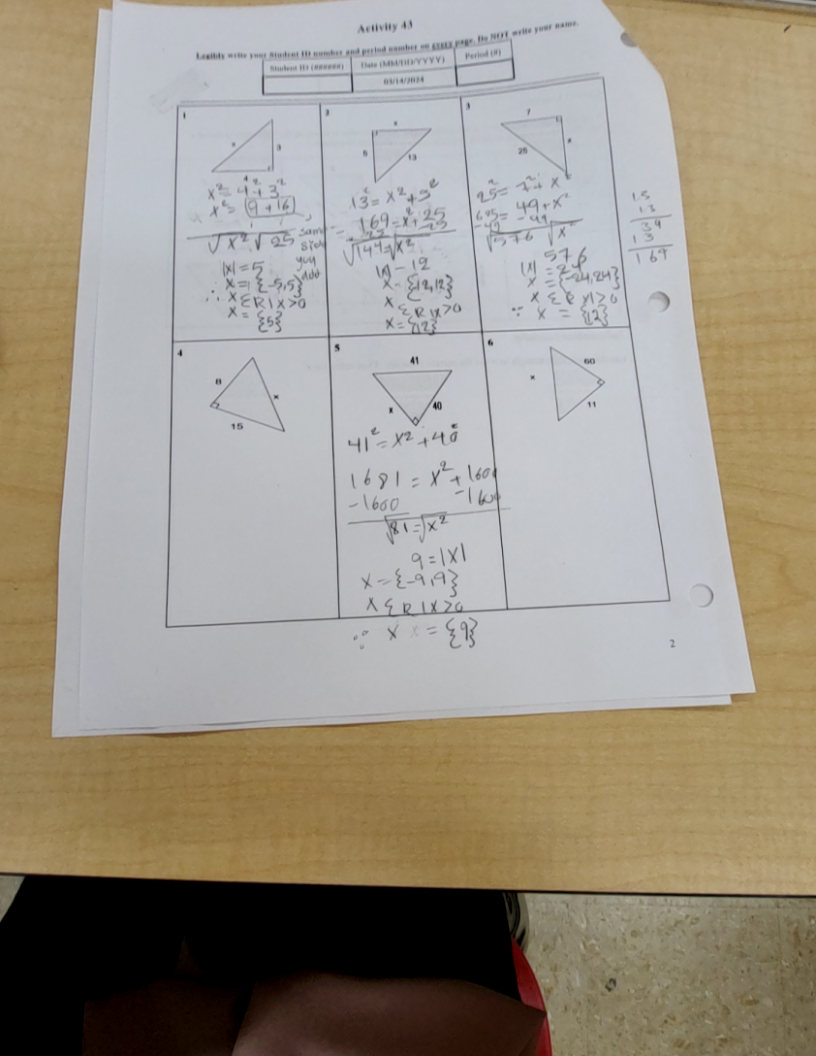 Activity 43
Legibly write your Student ID number and period number on every page. Do NOT write your name.
Student ID (######) Date (MM/DD/YYYY) Period (#)
03/14/2024
1
x
3
4
x² = 4² + 3²
x² = 9 + 16
√x² √25
same
side
you
add
|x| = 5
x = {-5,5}
∴ x ∈ ℝ | x > 0
x = {5}
2
x
5
13
13² = x² + 5²
169 = x² + 25
√144 = √x²
|x| - 12
x - {12,12}
x ∈ ℝ | x > 0
x = {12}
3
7
25
x
25² = 7² + x²
49 + x²
- 49
√576 √x²
576
|x| = 24
x = {-24,24}
x ∈ ℝ x | > 0
∵ x = {12}
13
39
13
169
4
8
x
15
5
41
x
40
41² = x² + 40²
1681 = x² + 1600
-1600 -1600
√81 = √x²
9 = |x|
x = {-9,9}
x ∈ ℝ | x > 0
∴ x = {9}
6
60
x
11
2